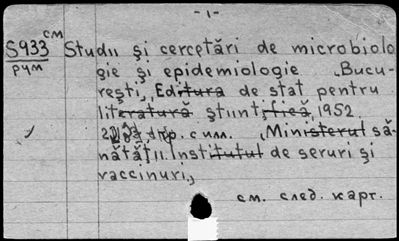 - 1 -
см
S933 Studii şi cercetări de microbiolo
рум gie şi epidemiologie Bucu-
reşti, Editura de stat pentru
literatură ştiinţifică, 1952.
стр. с илл. Ministerul să-
nătăţii. Institutul de seruri şi
vaccinuri.,
см. след. карт.